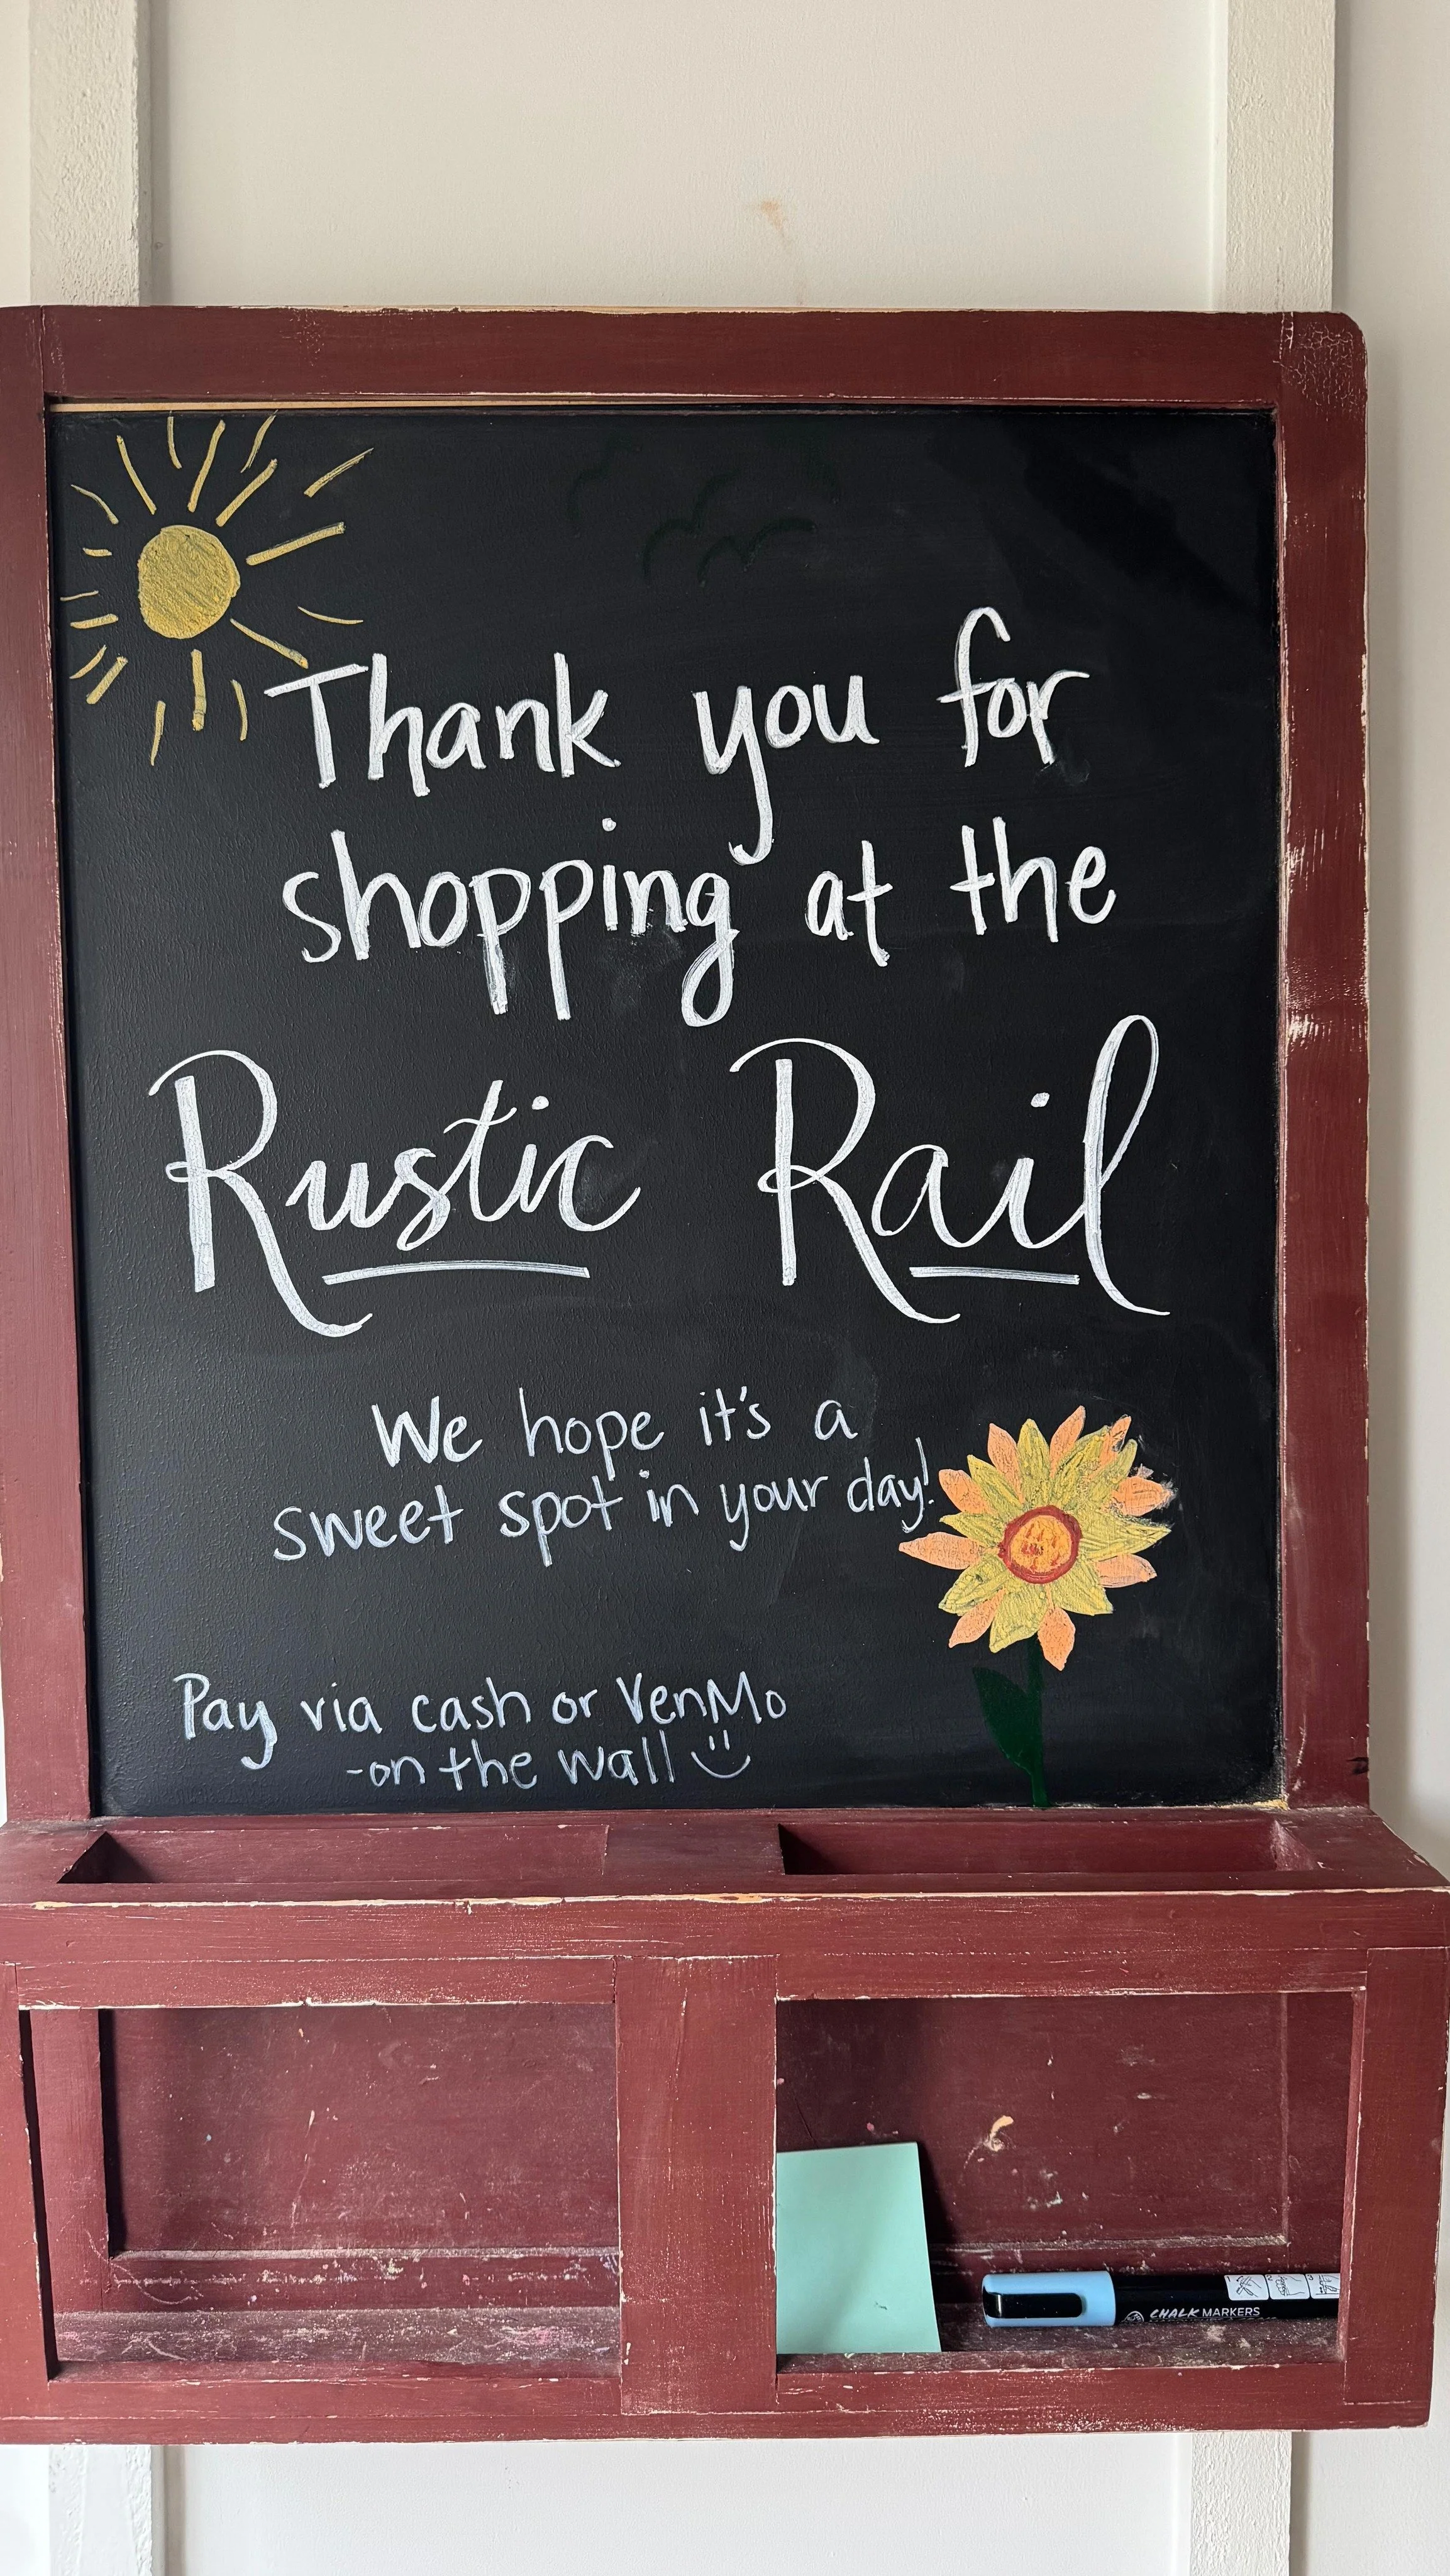 Thank you for
shopping at the
Rustic Rail
We hope it's a
sweet spot in your day!
Pay via cash or VenMo
-on the wall
CHALK MARKERS